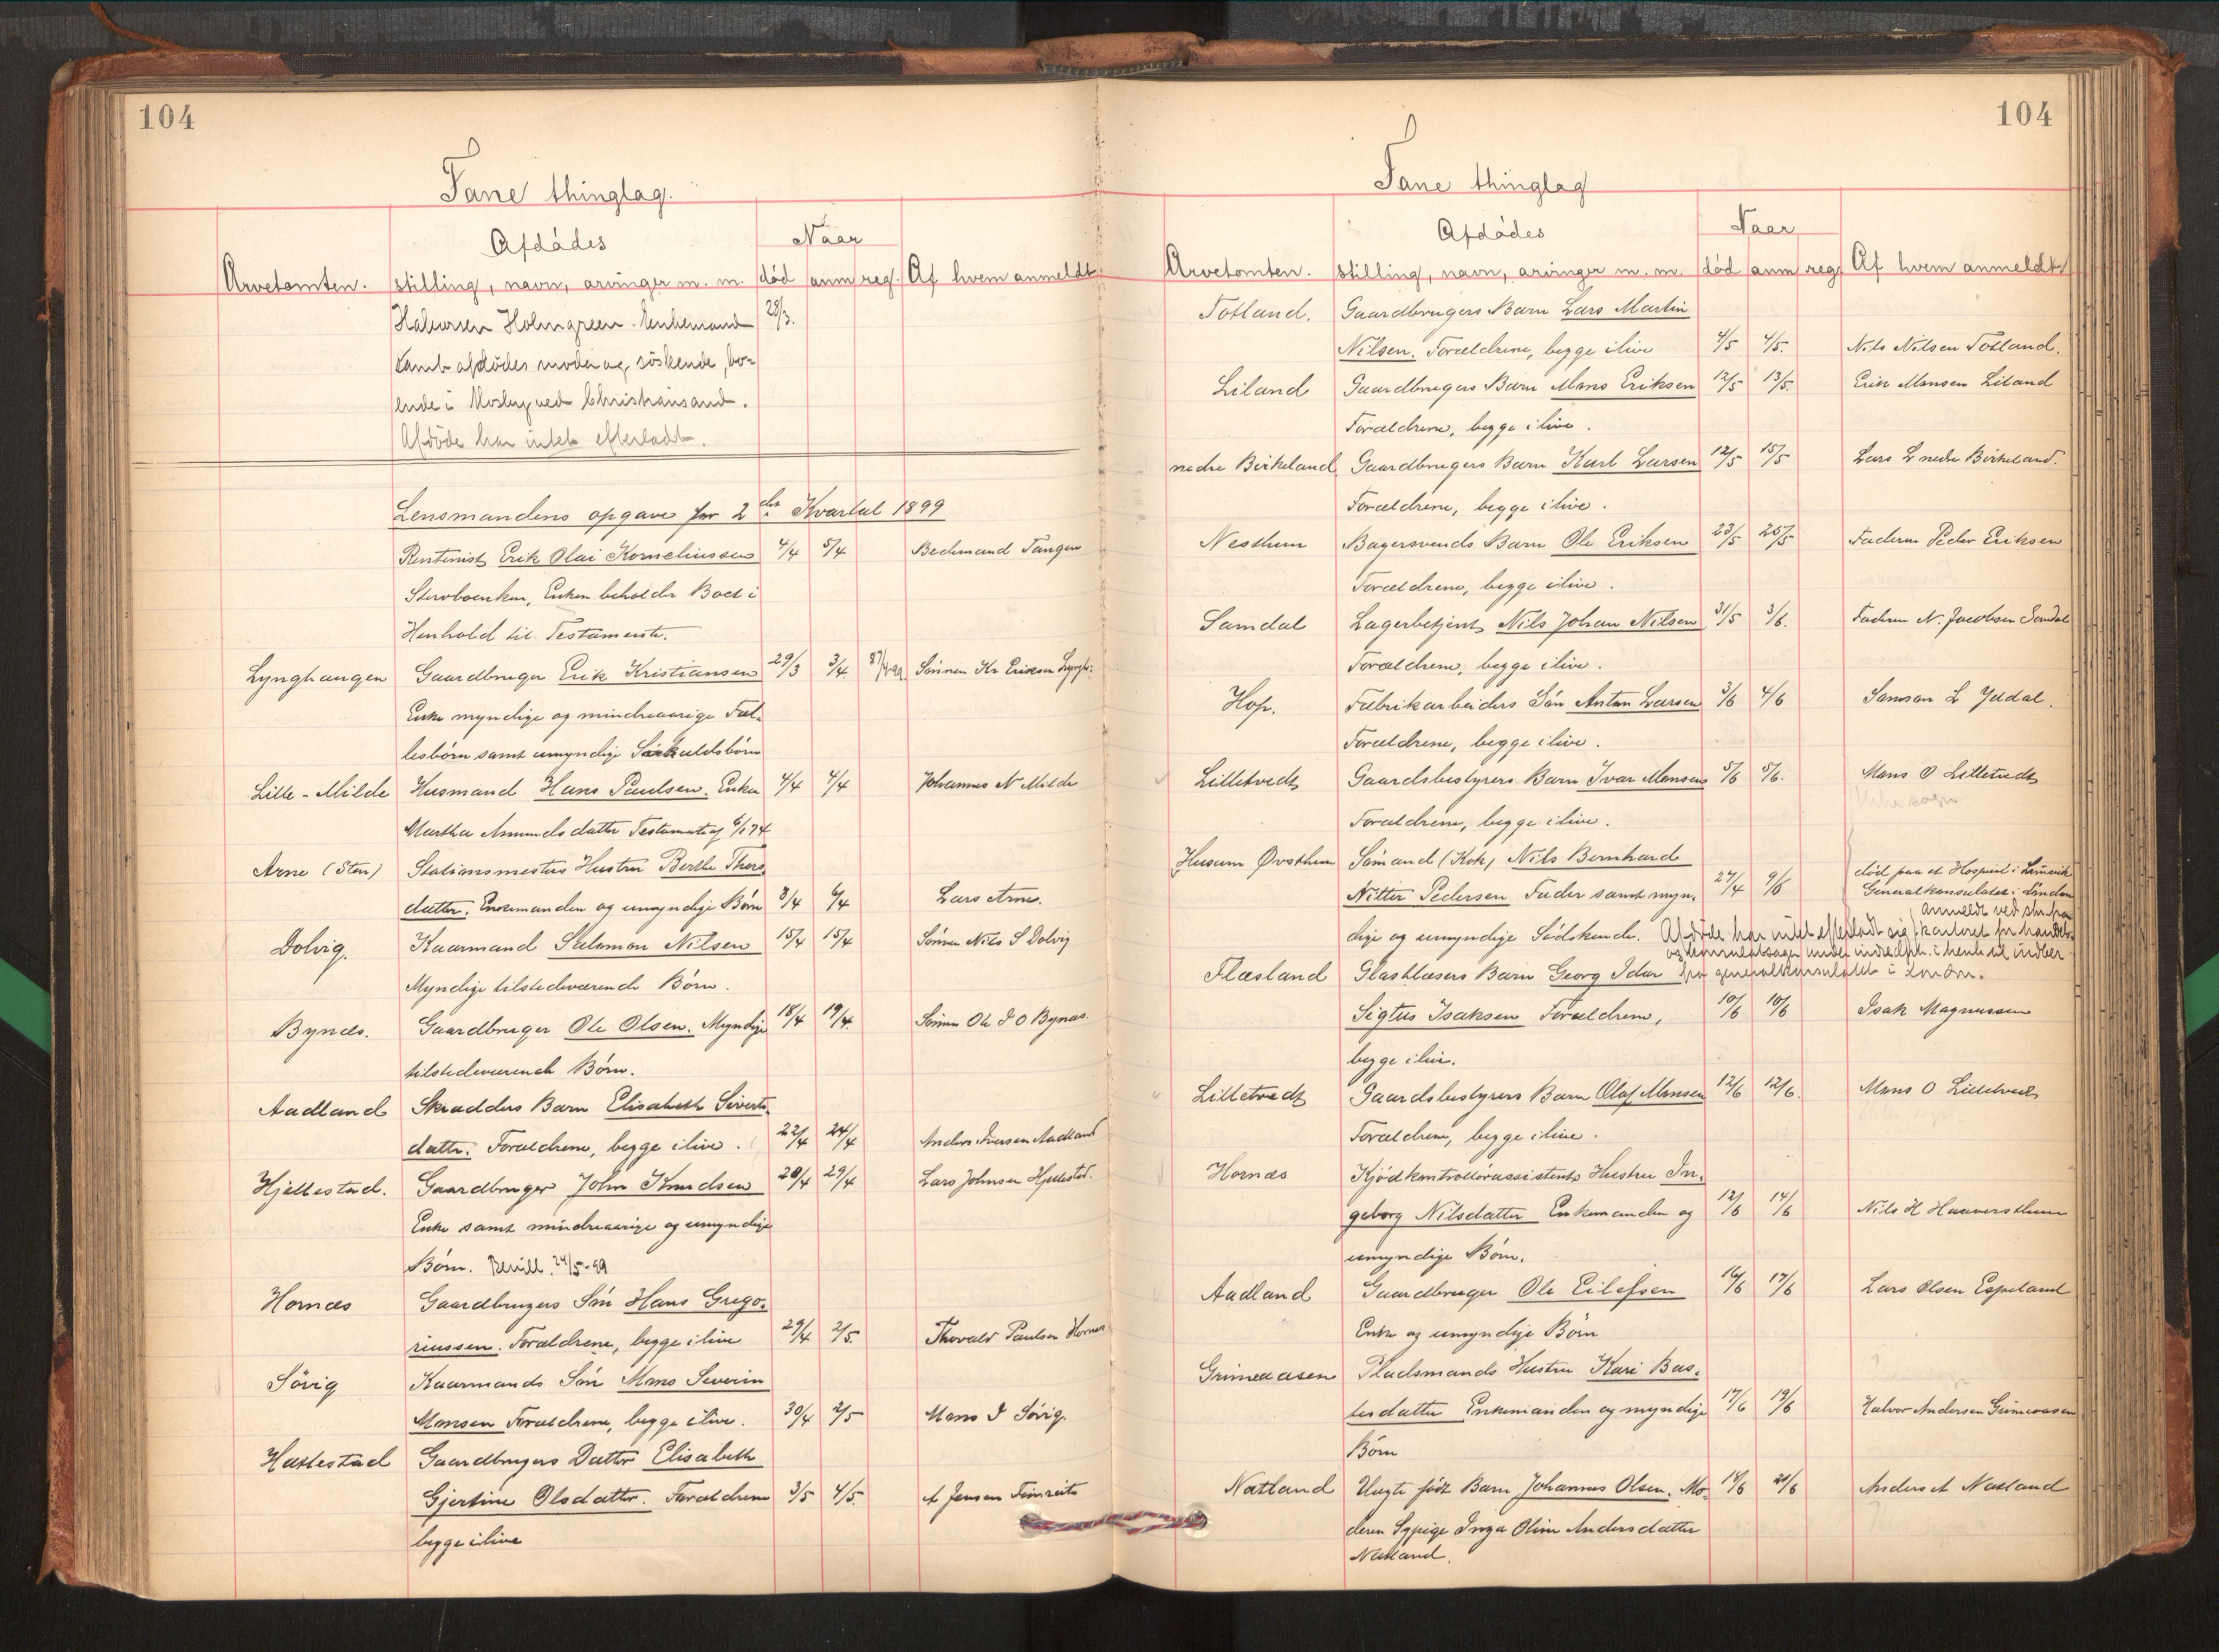 104
Fane thinglag.
Afdödes
Naar
Arvetomten.
stilling, navn, arvinger m. m.
död
anm
reg.
Af hvem anmeldt.
Halvorsen Holmgreen. Enkemand
28/3.
samt afdödes moder og söskende, bo-
ende i Mosby ved Christiansand.
Afdöde har intet efterladt.
Lensmandens opgave for 2det Kvartal 1899
Rentenist Erik Olai Korneliussen 4/4 5/4 Bechmand Tangen
Sterboenken, Enken beholder Boet i
Henhold til Testamente.
Lynghaugen Gaardbruger Erik Kristiansen 29/3 3/4 Sönnen Kr Eriksen Lyngh:
Enke myndige og mindreaarige Fæl-
lesbörn samt umyndige Særkuldsbörn
Lille-Milde Husmand Hans Paulsen. Enke 4/4 4/4 Johannes N Milde
Martha Amundsdatter Testament af 6/1 74
Arne (Stan) Stationsmesters Hustru Berthe Thors-
datter. Enkemanden og umyndige Börn 3/4 6/4 Lars Arne.
Dolvig. Kaarmand Salomon Nilsen 15/4 15/4 Sönnen Nils S Dolvig
Myndige tilstedeværende Börn.
Bynæs. Gaardbruger Ole Olsen. Myndige 18/4 19/4. Sönnen Ole J O Bynæs.
tilstedeværende Börn.
Aadland Skrædders Barn Elisabeth Siverts-
datter. Forældrene, begge ilive. 22/4 24/4 Anders Iversen Aadland
Hjellestad. Gaardbruger John Knudsen 28/4 29/4 Lars Johnsen Hjellestad.
Enke samt mindreaarige og umyndige
Börn. Bevill. 24/5-99
Hornæs Gaardbrugers Sön Hans Grego-
riussen. Forældrene, begge ilive 29/4 2/5 Thorvald Paulsen Hornæs
Sövig Kaarmands Sön Mons Severin
Monsen Forældrene, begge ilive. 30/4 2/5 Mons J Sövig.
Hatlestad Gaardbrugers Datter Elisabeth
Gjertine Olsdatter. Forældrene 3/5 4/5. A Jensen Titnreite
begge ilive
104
Fane thinglag
Afdödes
Naar
Arvetomten.
stilling, navn, arvinger m. m.
död
anm
reg.
Af hvem anmeldt
Totland. Gaardbrugers Barn Lars Martin
Nilsen. Forældrene, begge ilive 4/5 4/5. Nils Nilsen Totland.
Liland Gaardbrugers Barn Mons Eriksen 12/5 13/5. Erik Monsen Liland
Forældrene, begge ilive.
nedre Birkeland Gaardbrugers Barn Karl Larsen 12/5 15/5 Lars L nedre Birkeland.
Forældrene, begge ilive.
Nesthun Bagersvends Barn Ole Eriksen 23/5 25/5 Faderen Peder Eriksen
Forældrene, begge ilive.
Samdal Lagerbetjent Nils Johan Nilsen 31/5 3/6. Faderen N. Jacobsen Samdal
Forældrene, begge ilive.
Hop. Fabrikarbeiders Sön Anton Larsen 3/6 4/6 Samson L Yddal.
Forældrene, begge ilive.
Lilletvedt Gaardsbestyrers Barn Ivar Monsen 5/6 5/6. Mons O Lilletvedt
Forældrene, begge ilive.
Husum Øvsthun Sömand (Kok) Nils Bernhard
Nitter Pedersen Fader samt myn- 27/4 9/6 död paa et Hospital i Limerik
Generalkonsulatet i London
anmeldt ved skr. fra
dige og umyndige Södskende. Afdöde har intet efterladt sig kontoret for handels
og konsulatsager under indredept. i henh. til indber.
fra generalkonsulatet i London.
Flæsland Glasblæsers Barn Georg Idar
Sigtus Isaksen Forældrene, 10/6 10/6 Isak Magnussen
begge ilive.
Lilletvedt Gaardsbestyrers Barn Olaf Monsen 12/6 12/6. Mons O Lilletvedt
Forældrene, begge ilive.
Hornæs Kjödkontrollörassistents Hustru In-
geborg Nilsdatter Enkemanden og 12/6 14/6 Nils H Haaversthun
umyndige Börn.
Aadland Gaardbruger Ole Eilefsen 16/6 17/6 Lars Olsen Espeland
Enke og umyndige Börn
Grimeaasen Pladsmands Hustru Kari Bas-
tesdatter Enkemanden og myndige 17/6 19/6 Halvor Andersen Grimeaasen
Börn
Natland Uægte födt Barn Johannes Olsen. Mo- 18/6 21/6 Anders A Natland
deren Sypige Inga Oline Andersdatter
Natland.